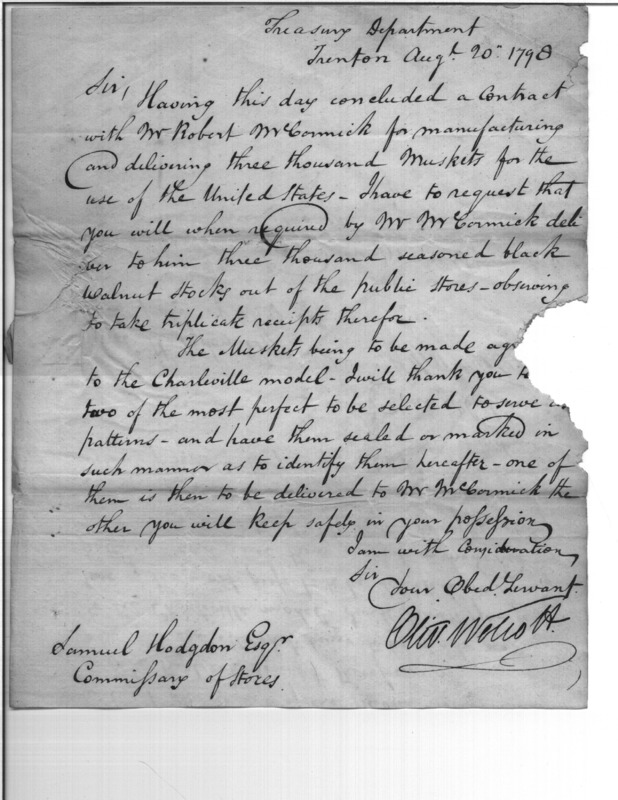 Treasury Department
Trenton Augt. 20th 1798
Sir,
Having this day concluded a Contract
with Mr Robert McCormick for manufacturing
and delivering three thousand Muskets for the
use of the United States – I have to request that
you will when required by Mr McCormick deli
ver to him three thousand seasoned black
Walnut Stocks out of the public stores – observing
to take triplicate receipts therefor.
The Muskets being to be made
to the Charleville model – I will thank you
two of the most perfect to be selected to serve
patterns – and have them sealed or marked in
such manner as to identify them hereafter – one of
them is then to be delivered to Mr McCormick the
other you will keep safely in your possession
I am with Consideration
Sir
Your Obed. Servant
Oliv. Wolcott.
Samuel Hodgdon Esqr.
Commissary of Stores.